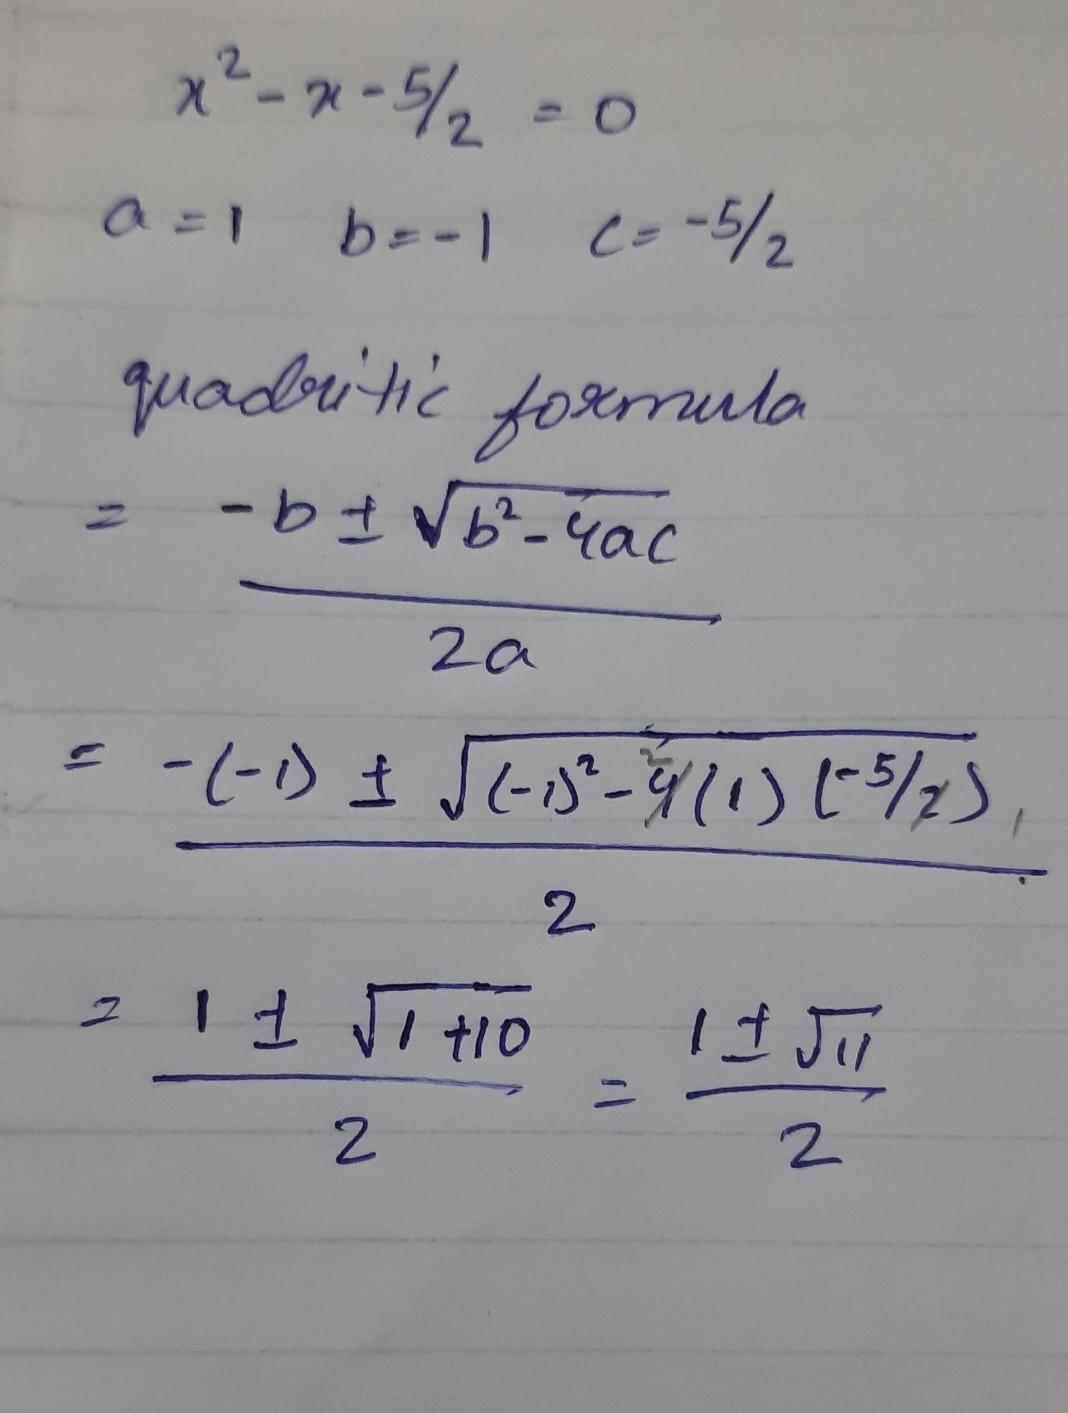 x² - x - 5/2 = 0
a = 1 b = -1 c = -5/2
quadritic formula
= -b ± √b² - 4ac
2a
= -(-1) ± √(-1)² - 4(1)(-5/2)
2
= 1 ± √1+10 = 1 ± √11
2 2